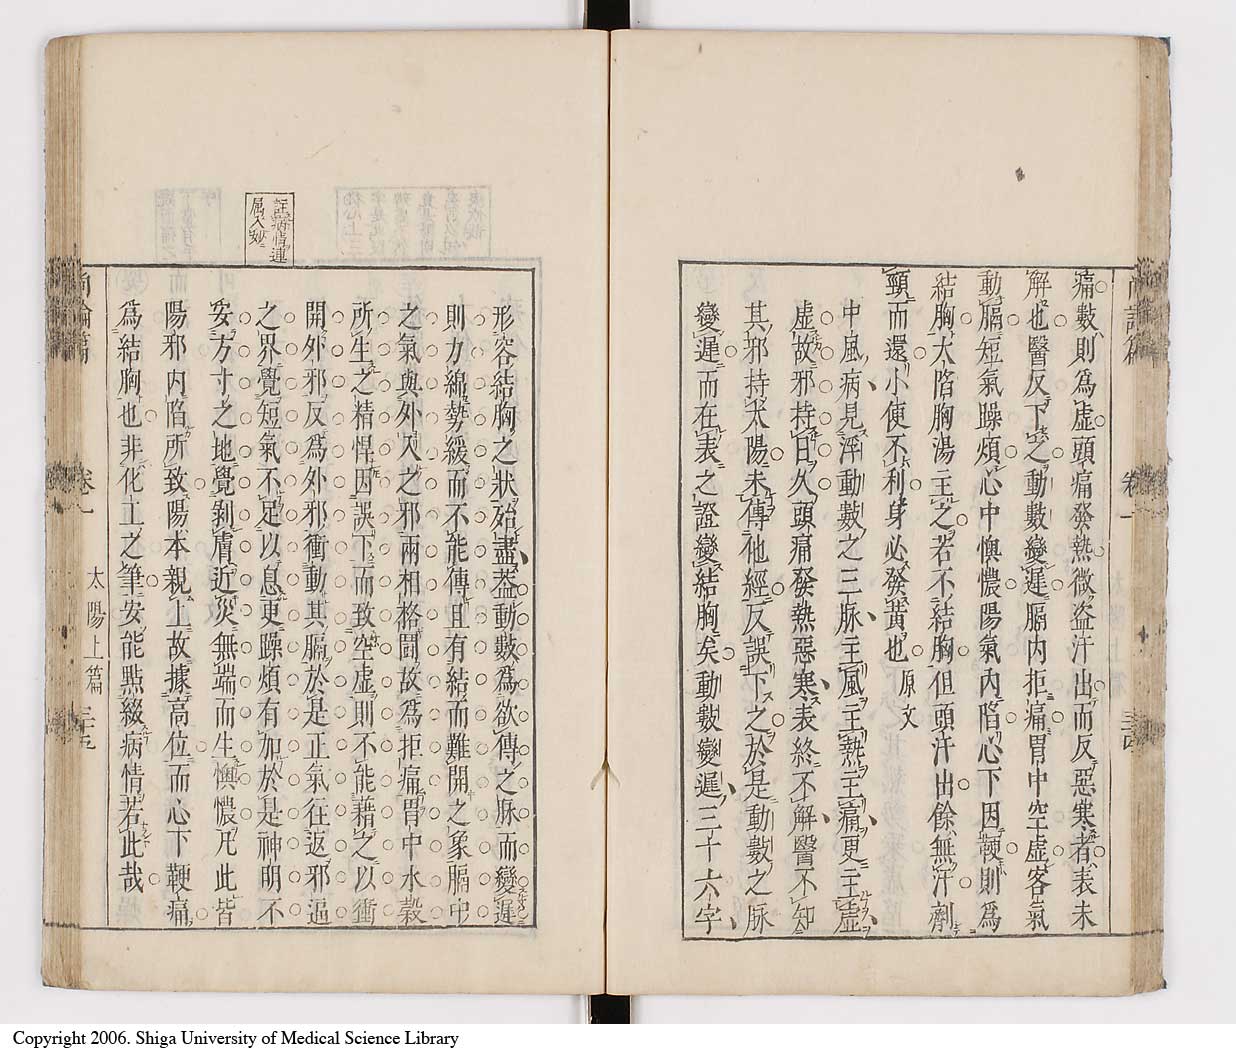 痛數則爲虛頭痛發熱微盜汗出而反惡寒者表未
解也醫反下之動數變遲膈內拒痛胃中空虛客氣
動膈短氣躁煩心中懊憹陽氣內陷心下因鞕則爲
結胸大陷胸湯主之若不結胸但頭汗出餘無汗劑
頸而還小便不利身必發黃也 原文
中風病見浮動數之三脉主風主熱主痛更主虛
虛故邪持日久頭痛發熱惡寒表終不解醫不知
其邪持太陽未傳他經反誤下之於是動數之脉
變遲而在表之證變結胸矣動數變遲三十六字
形容結胸之狀始盡葢動數爲欲傳之脉而變遲
則力綿勢緩而不能傳且有結而難開之象膈中
之氣與外入之邪兩相格鬭故爲拒痛胃中水穀
所生之精悍因誤下而致空虛則不能藉之以衝
開外邪反爲外邪衝動其膈於是正氣往返邪逼
之界覺短氣不足以息更躁煩有加於是神明不
安方寸之地覺剝膚近災無端而生懊憹凡此皆
陽邪內陷所致陽本親上故據高位而心下鞕痛
爲結胸也非化工之筆安能點綴病情若此哉
註病情連
屈入妙
太陽上篇
三十五
Copyright 2006. Shiga University of Medical Science Library